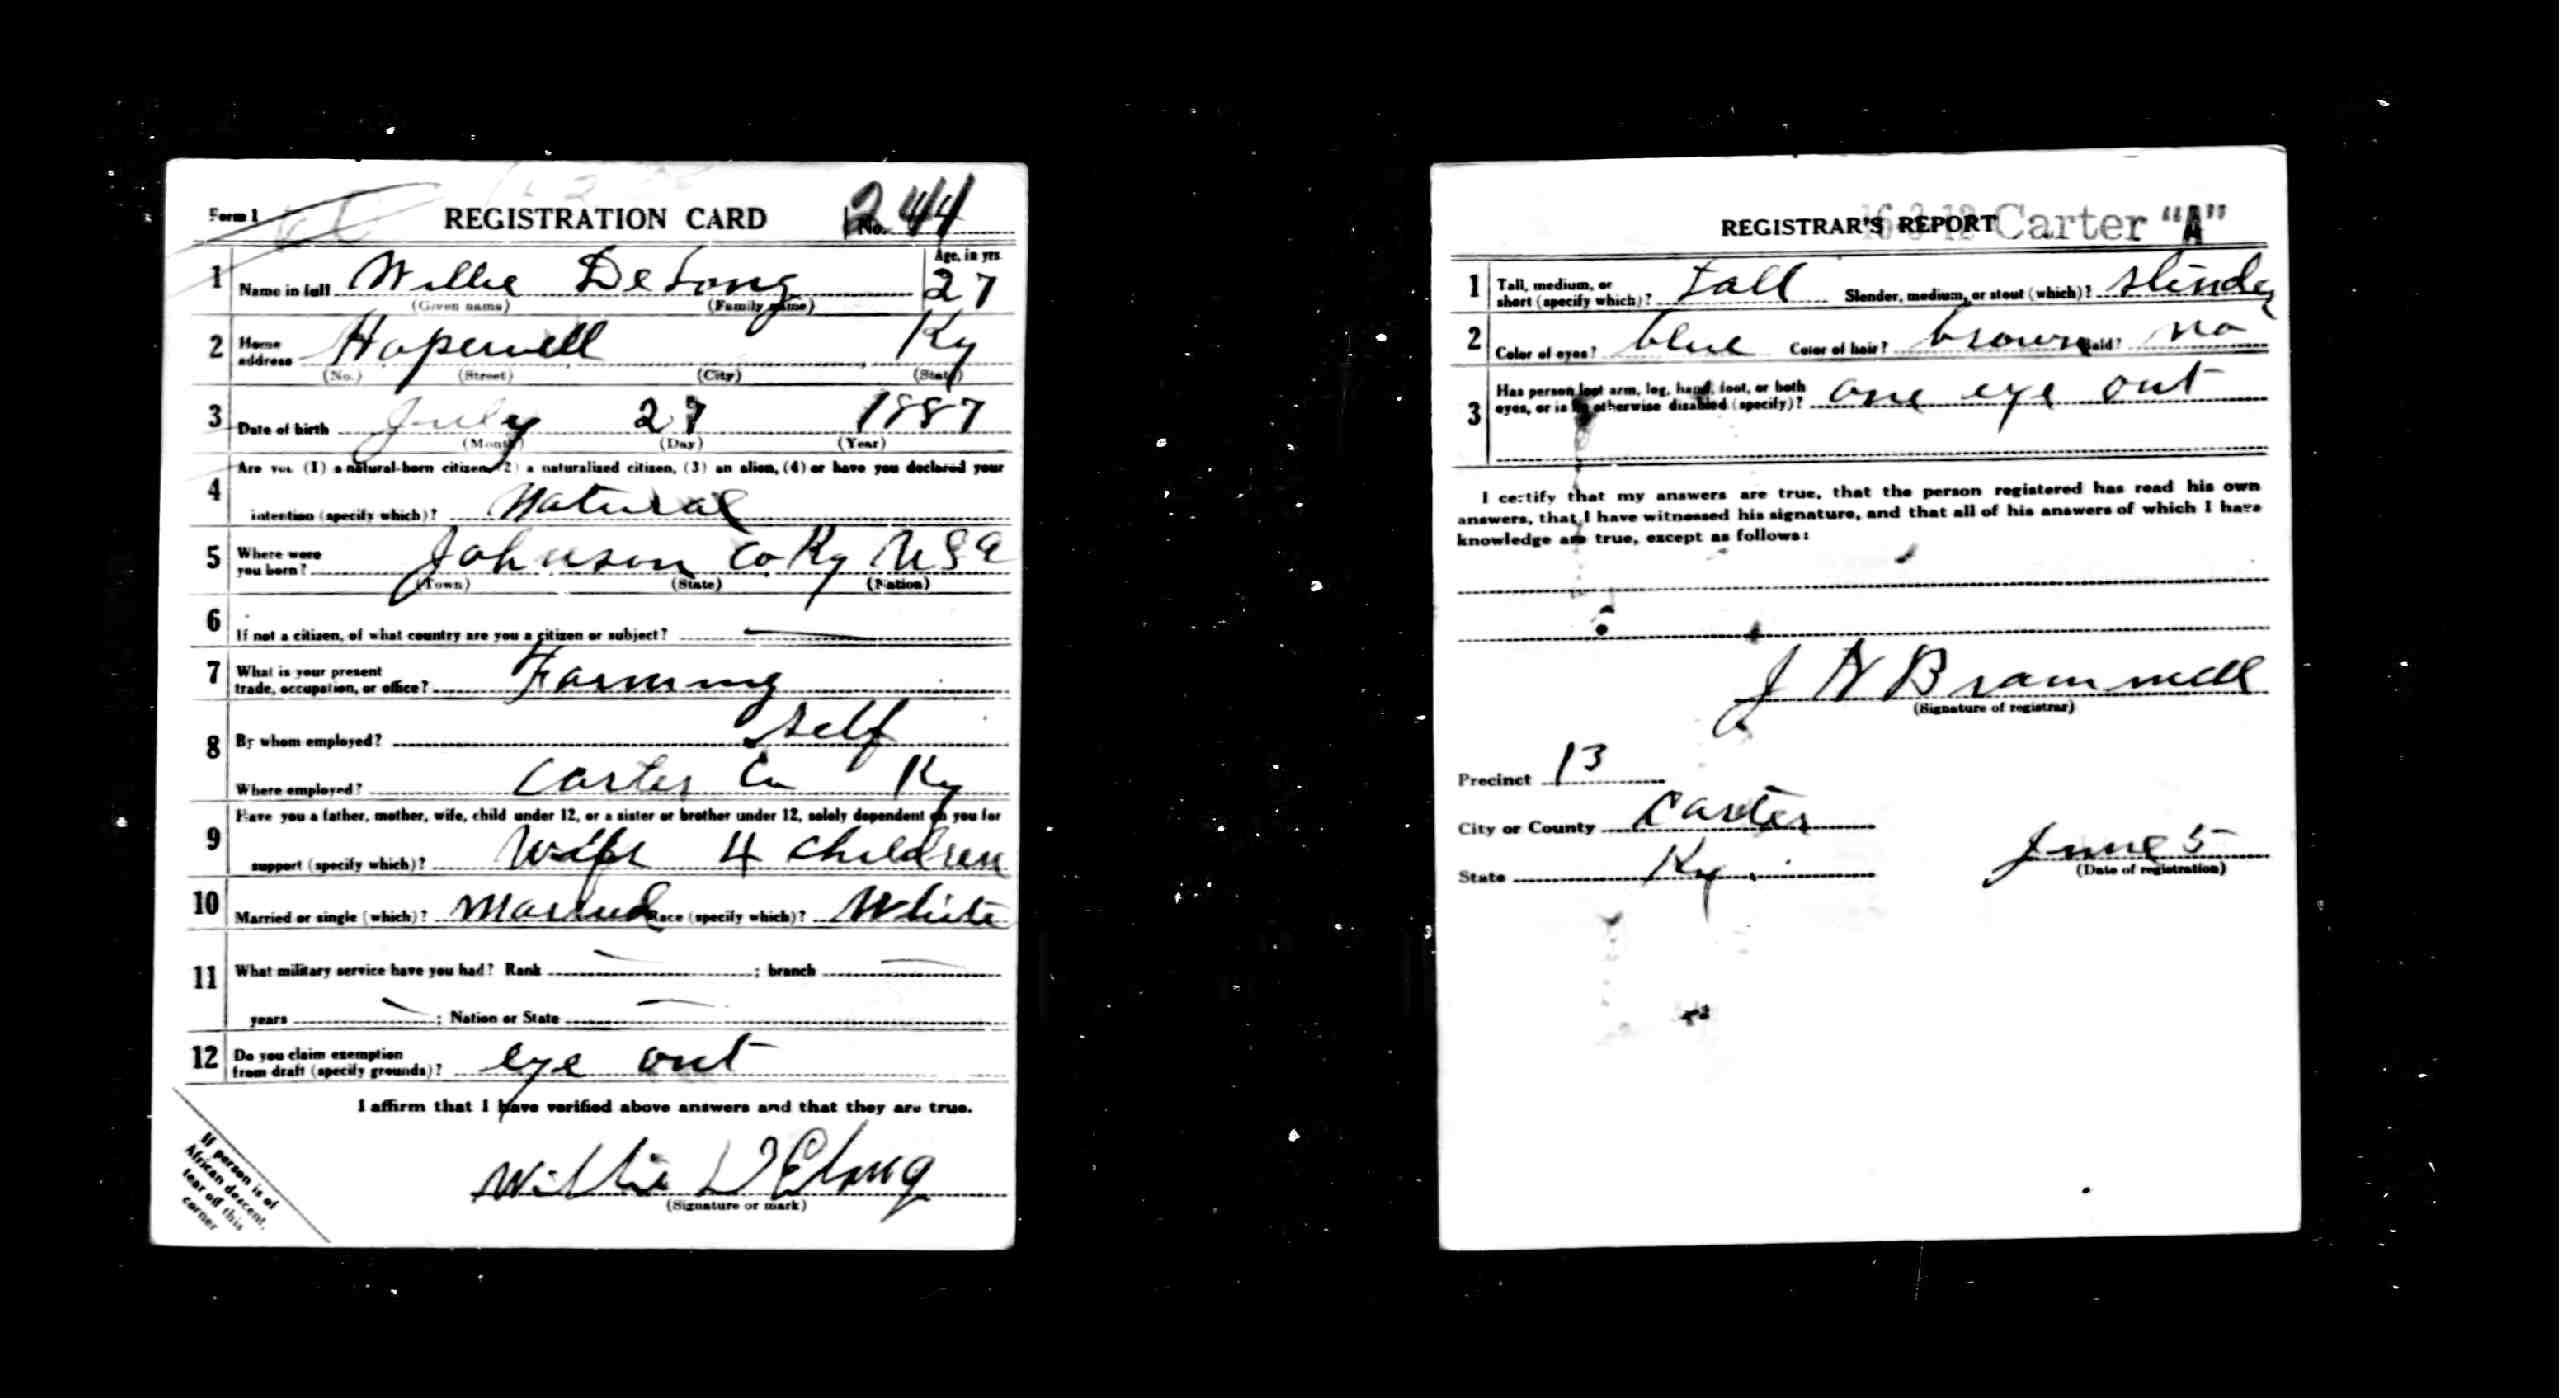 Form 1 REGISTRATION CARD No. 244
1 Name in full Willie DeLong Age, in yrs. 27
(Given name) (Family name)
2 Home address Hopewell Ky
(No.) (Street) (City) (State)
3 Date of birth July 27 1887
(Month) (Day) (Year)
4 Are you (1) a natural-born citizen, (2) a naturalized citizen, (3) an alien, (4) or have you declared your
intention (specify which)? Natural
5 Where were you born? Johnson Co Ky USA
(Town) (State) (Nation)
6 If not a citizen, of what country are you a citizen or subject?
7 What is your present trade, occupation, or office? Farming
8 By whom employed? self
Where employed? Carter Co Ky
9 Have you a father, mother, wife, child under 12, or a sister or brother under 12, solely dependent on you for
support (specify which)? Wife 4 children
10 Married or single (which)? Married Race (specify which)? White
11 What military service have you had? Rank ; branch
years ; Nation or State
12 Do you claim exemption from draft (specify grounds)? eye out
I affirm that I have verified above answers and that they are true.
Willie DElong
(Signature or mark)
If person is of
African descent,
tear off this
corner
REGISTRAR'S REPORT Carter "A"
1 Tall, medium, or short (specify which)? tall Slender, medium, or stout (which)? slinder
2 Color of eyes? blue Color of hair? brown Bald? no
3 Has person lost arm, leg, hand, foot, or both
eyes, or is he otherwise disabled (specify)? one eye out
I certify that my answers are true, that the person registered has read his own
answers, that I have witnessed his signature, and that all of his answers of which I have
knowledge are true, except as follows:
J N Brammell
(Signature of registrar)
Precinct 13
City or County Carter
State Ky June 5
(Date of registration)